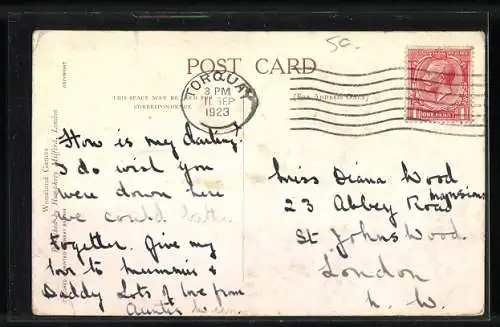 50.
POST CARD
TORQUAY
3 PM
11 SEP
1923
ONE PENNY
THIS SPACE MAY BE USED FOR
CORRESPONDENCE
(For Address Only)
COPYRIGHT
Woodland Games
Humphrey Milford, London
How is my darling.
I do wish you
were down here
we could
together. Give my
love to Mummie &
Daddy Lots of love from
Auntie
Miss Diana Wood
23 Abbey Road Mansions
St Johns Wood
London
N. W.